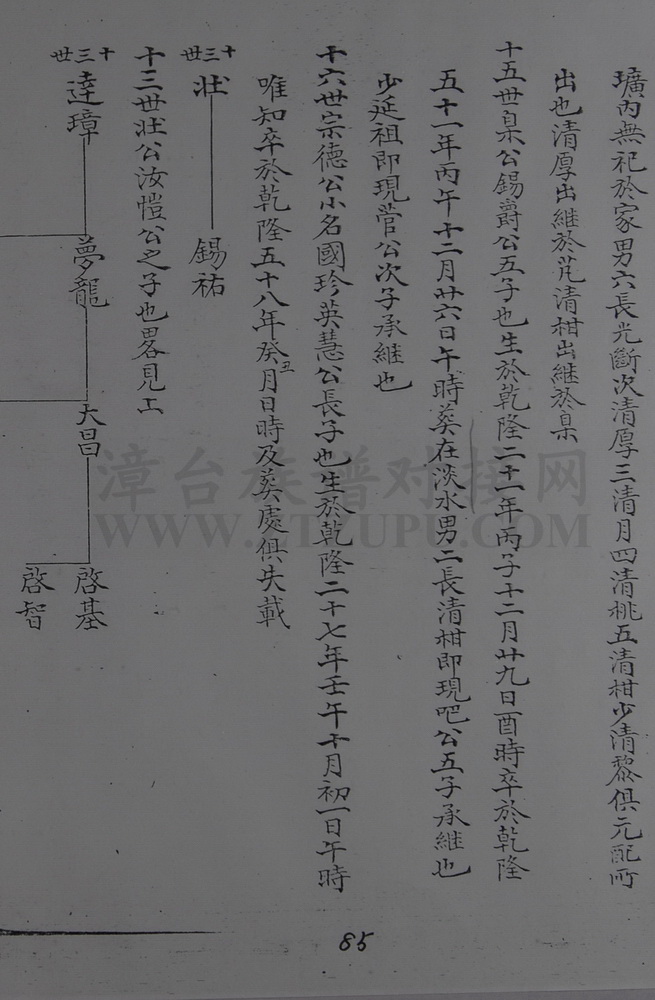 壙內無祀於家男六長光斷次清厚三清月四清桃五清柑少清黎俱元配所
出也清厚出継於芃清柑出継於臬
十五世臬公錫爵公五子也生於乾隆二十一年丙子十二月廿九日酉時卒於乾隆
五十一年丙午十二月廿六日午時葬在淡水男二長清柑即現吧公五子承継也
少延祖即現菅公次子承継也
十六世宗德公小名國珍英慧公長子也生於乾隆二十七年壬午十月初一日午時
唯知卒於乾隆五十八年癸丑月日時及葬處俱失載
十三世 壯 錫祐
十三世壯公汝愷公之子也畧見上
十三世 達璋 夢龍 大昌 啓基
啓智
漳台族谱对接网
WWW.ZTZUPU.COM
85